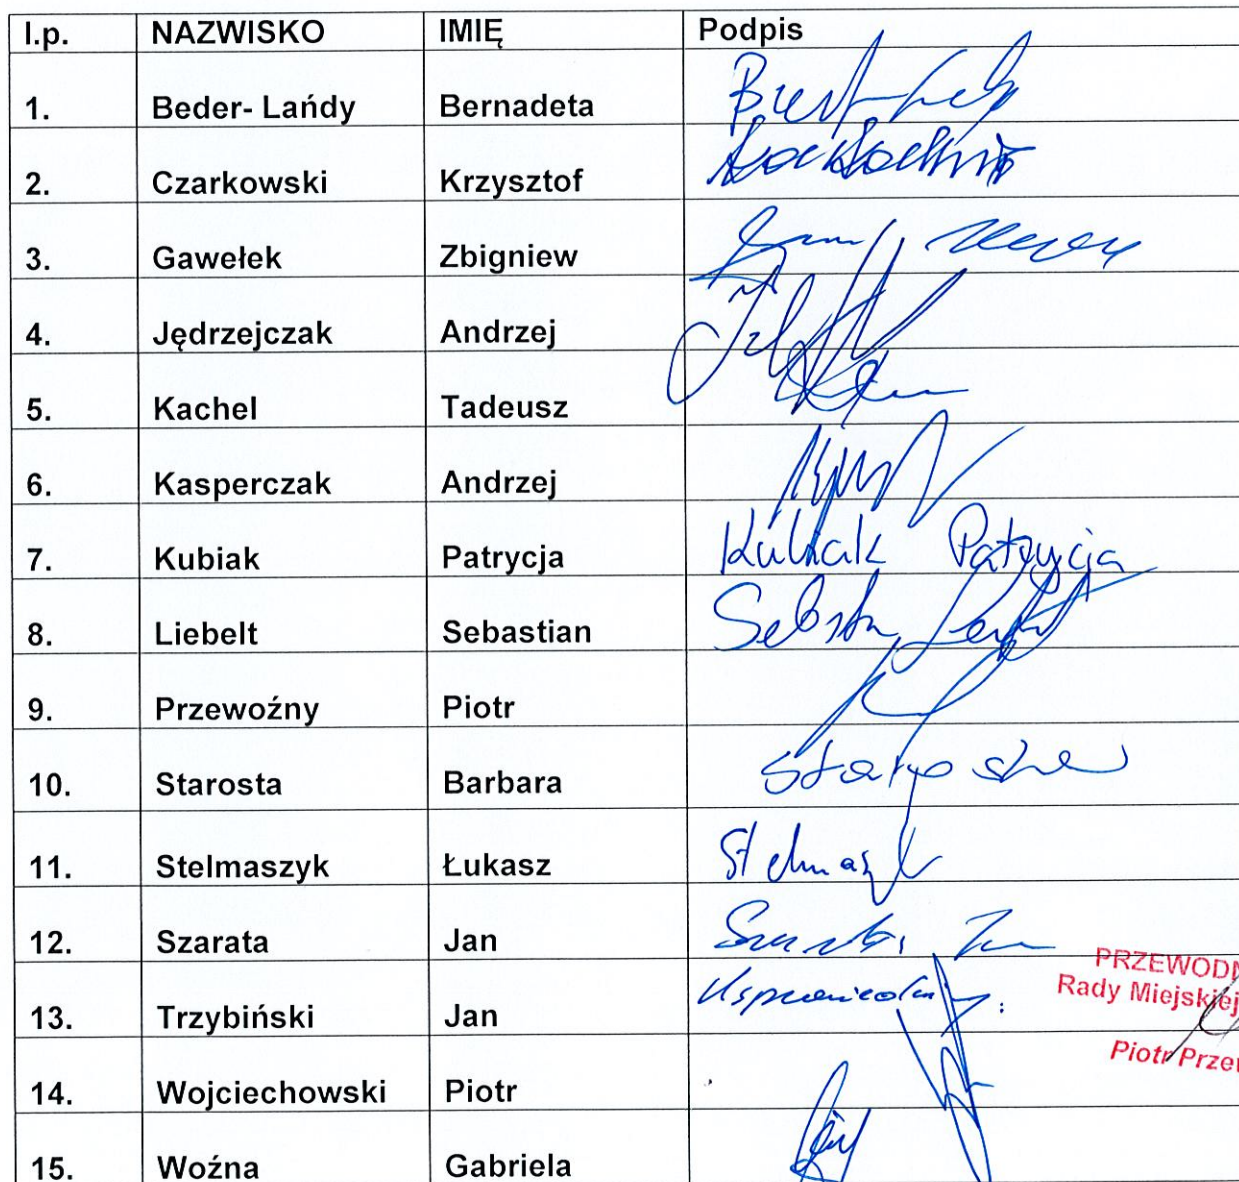 l.p. NAZWISKO IMIĘ Podpis
1. Beder- Lańdy Bernadeta
2. Czarkowski Krzysztof
3. Gawełek Zbigniew
4. Jędrzejczak Andrzej
5. Kachel Tadeusz
6. Kasperczak Andrzej
7. Kubiak Patrycja Kubiak Patrycja
8. Liebelt Sebastian
9. Przewoźny Piotr
10. Starosta Barbara
11. Stelmaszyk Łukasz Stelmaszyk
12. Szarata Jan
PRZEWODN
13. Trzybiński Jan
Rady Miejskiej
Piotr Przew
14. Wojciechowski Piotr
15. Woźna Gabriela